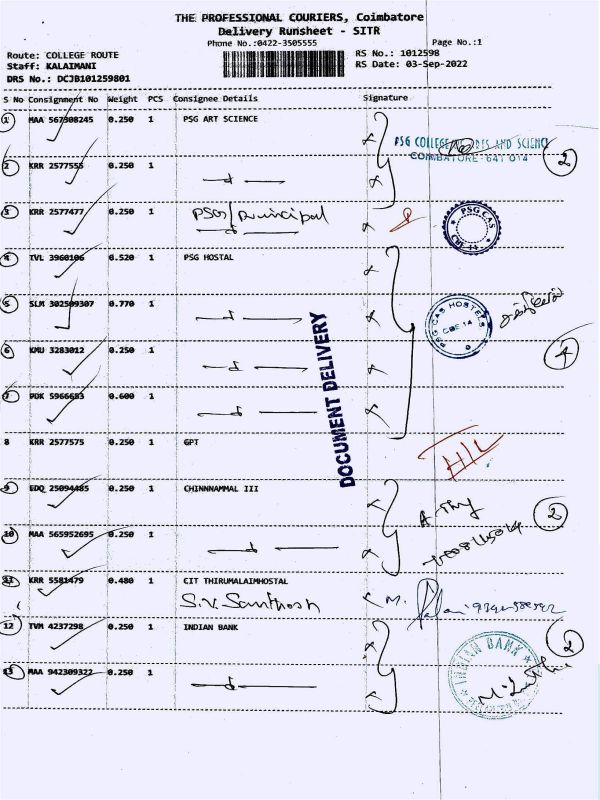 THE PROFESSIONAL COURIERS, Coimbatore
Delivery Runsheet - SITR
Phone No.:0422-3505555
Page No.:1
Route: COLLEGE ROUTE
RS No.: 1012598
Staff: KALAIMANI
RS Date: 03-Sep-2022
DRS No.: DCJB101259801
S No Consignment No Weight PCS Consignee Details Signature
1 MAA 567308245 0.250 1 PSG ART SCIENCE
PSG COLLEGE OF ARTS AND SCIENCE
COIMBATORE - 641 014
2
2 KRR 2577555 0.250 1
3 KRR 2577477 0.250 1 PSG/Principal
PSG CAS
4 TVL 3960106 0.520 1 PSG HOSTAL
5 SLM 302599307 0.770 1
PSG CAS HOSTELS
CBE 14
6 KMU 3283012 0.250 1
4
7 PDK 5966653 0.600 1
DOCUMENT DELIVERY
8 KRR 2577575 0.250 1 GPT
9 EDQ 25094485 0.250 1 CHINNNAMMAL III
2
10 MAA 565952695 0.250 1
11 KRR 5581479 0.480 1 CIT THIRUMALAIMHOSTAL
S.V. Santhosh
12 TVM 4237298 0.250 1 INDIAN BANK
2
INDIAN BANK
13 MAA 942309322 0.250 1